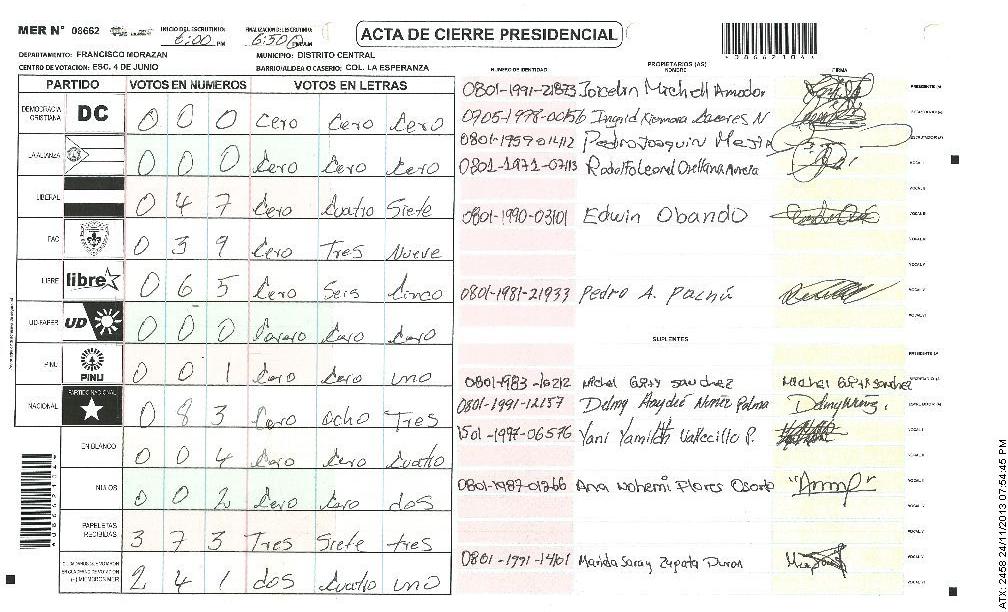 MER N° 08662 INICIO DEL ESCRUTINIO: 6:00 PM FINALIZACION ESCRUTINIO: 6:50 ACTA DE CIERRE PRESIDENCIAL
DEPARTAMENTO: FRANCISCO MORAZAN MUNICIPIO: DISTRITO CENTRAL
CENTRO DE VOTACION: ESC. 4 DE JUNIO BARRIO/ALDEA O CASERIO: COL. LA ESPERANZA
PARTIDO VOTOS EN NUMEROS VOTOS EN LETRAS
DEMOCRACIA CRISTIANA DC 0 0 0 Cero Cero Cero
LA ALIANZA 0 0 0 Cero Cero Cero
LIBERAL 0 4 7 Cero Cuatro Siete
PAC 0 3 9 Cero Tres Nueve
LIBRE libre 0 6 5 Cero Seis Cinco
UD-FAPER UD 0 0 0 Cero Cero
PINU PINU 0 0 1 Cero Cero uno
NACIONAL PARTIDO NACIONAL 0 8 3 Cero ocho Tres
EN BLANCO 0 0 4 Cero Cero Cuatro
NULOS 0 0 2 Cero Cero dos
PAPELETAS RECIBIDAS 3 7 3 Tres Siete tres
2 4 1 dos Cuatro uno
NUMERO DE IDENTIDAD PROPIETARIOS (AS) NOMBRE FIRMA
0801-1991-21873 Joicelin Michell Amador PRESIDENTE (A)
0705-1978-00156 Ingrid
0801-1959-01412 Pedro Joaquin Mejia
0801-1971-07113 Rodolfo Leonel Orellana
0801-1990-03101 Edwin Obando
0801-1981-21933 Pedro A.
SUPLENTES
0801-1983-10212 Michel Sanchez
0801-1991-12157 Delmy Haydeé Nuñez Palma
1501-1997-06576 Yani Yamileth Vallecillo P.
0801-1987-01266 Ana Nohemi Flores Osorto
0801-1991-14461 Marida Saray Zapata Duron
ATX: 2458 24/11/2013 07:54:45 PM